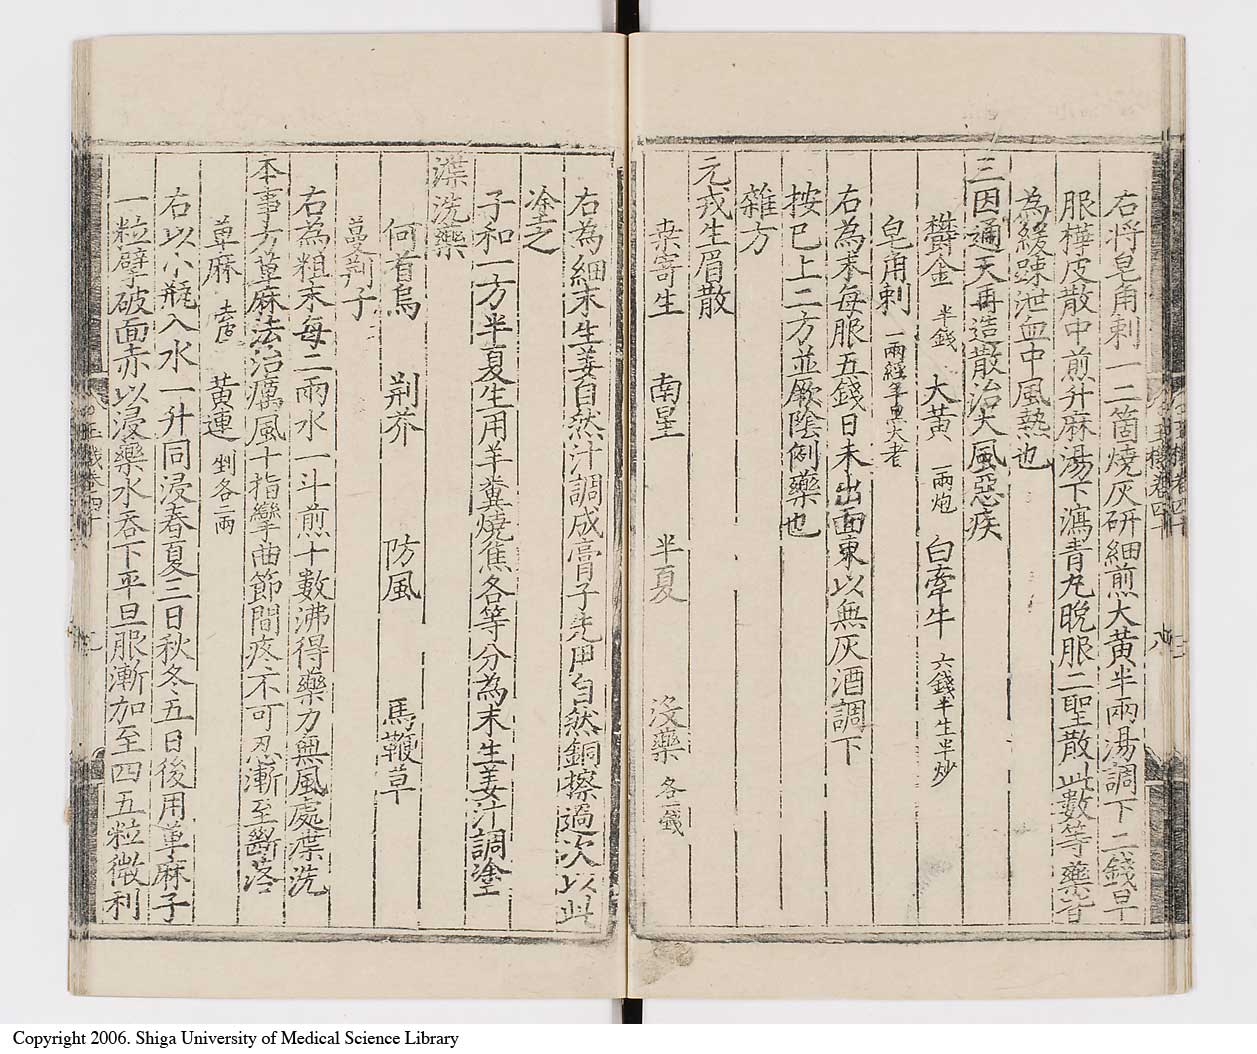 右将皂角刺一二箇燒灰研細煎大黃半兩湯調下二錢早
服樺皮散中煎升麻湯下瀉青丸晩服二聖散此數等藥皆
為緩踈泄血中風熱也
三因通天再造散治大風惡疾
欝金 半錢 大黃 一兩炮 白牽牛 六錢半生半炒
皂角刺 一兩經年黑大者
右為末每服五錢日未出面東以無灰酒調下
按已上二方並厥陰例藥也
雜方
元戎生眉散
桒寄生 南星 半夏 沒藥 各一錢
右為細末生姜自然汁調成膏子先用自然銅擦過次以此
塗之
子和一方半夏生用羊糞燒焦各等分為末生姜汁調塗
渫洗藥
何首烏 荆芥 防風 馬鞭草
蔓荆子
右為粗末每二兩水一斗煎十數沸得藥力無風處渫洗
本事方萆麻法治癘風十指攣曲節間疼不可忍漸至斷落
萆麻 去皮 黃連 剉各二兩
右以小瓶入水一升同浸春夏三日秋冬五日後用萆麻子
一粒擘破面赤以浸藥水吞下平旦服漸加至四五粒微利
Copyright 2006. Shiga University of Medical Science Library